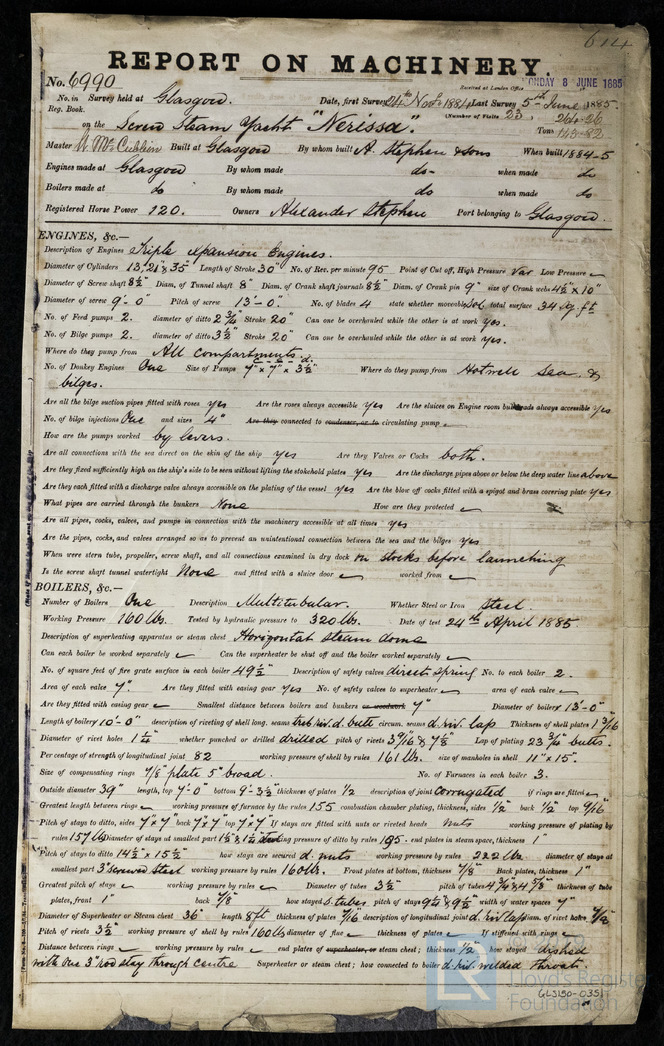 614
REPORT ON MACHINERY.
No. 6990 Received at London Office MONDAY 8 JUNE 1885
No. in Survey held at Glasgow. Date, first Survey 24th Nov 1884 Last Survey 5th June 1885.
Reg. Book. (Number of Visits 23)
on the Screw Steam Yacht "Nerissa". Tons
Master Built at Glasgow By whom built A. Stephen & Sons When built 1884-5
Engines made at Glasgow By whom made do- when made do
Boilers made at do By whom made do when made do
Registered Horse Power 120. Owners Alexander Stephen Port belonging to Glasgow.
ENGINES, &c.—
Description of Engines Triple Expansion Engines.
Diameter of Cylinders 13", 21" & 35" Length of Stroke 30" No. of Rev. per minute 95 Point of Cut off, High Pressure Var Low Pressure
Diameter of Screw shaft 8½" Diam. of Tunnel shaft 8" Diam. of Crank shaft journals 8½" Diam. of Crank pin 9" size of Crank webs 4½" x 10"
Diameter of screw 9'-0" Pitch of screw 13'-0" No. of blades 4 state whether moveable total surface 34 sq. ft
No. of Feed pumps 2. diameter of ditto 2¾" Stroke 20" Can one be overhauled while the other is at work yes.
No. of Bilge pumps 2. diameter of ditto 3½" Stroke 20" Can one be overhauled while the other is at work yes.
Where do they pump from All compartments.
No. of Donkey Engines One Size of Pumps 7" x 7" x 3½" Where do they pump from Hotwell Sea &
bilges.
Are all the bilge suction pipes fitted with roses yes Are the roses always accessible yes Are the sluices on Engine room bulkheads always accessible yes
No. of bilge injections One and sizes 4" Are they connected to condenser, or to circulating pump
How are the pumps worked by levers.
Are all connections with the sea direct on the skin of the ship yes Are they Valves or Cocks both.
Are they fixed sufficiently high on the ship's side to be seen without lifting the stokehold plates yes Are the discharge pipes above or below the deep water line above
Are they each fitted with a discharge valve always accessible on the plating of the vessel yes Are the blow off cocks fitted with a spigot and brass covering plate yes
What pipes are carried through the bunkers None How are they protected
Are all pipes, cocks, valves, and pumps in connection with the machinery accessible at all times yes
Are the pipes, cocks, and valves arranged so as to prevent an unintentional connection between the sea and the bilges yes
When were stern tube, propeller, screw shaft, and all connections examined in dry dock on stocks before launching
Is the screw shaft tunnel watertight None and fitted with a sluice door worked from
BOILERS, &c.—
Number of Boilers One Description Multitubular. Whether Steel or Iron Steel
Working Pressure 160 lbs. Tested by hydraulic pressure to 320 lbs. Date of test 24th April 1885
Description of superheating apparatus or steam chest Horizontal steam dome
Can each boiler be worked separately Can the superheater be shut off and the boiler worked separately
No. of square feet of fire grate surface in each boiler 49½" Description of safety valves direct spring No. to each boiler 2.
Area of each valve 7". Are they fitted with easing gear yes No. of safety valves to superheater area of each valve
Are they fitted with easing gear Smallest distance between boilers and bunkers or woodwork 7" Diameter of boiler 13'-0"
Length of boiler 10'-0" description of riveting of shell long. seams treb. riv. d. butt circum. seams d. riv. lap Thickness of shell plates 1 3/16
Diameter of rivet holes 1¼" whether punched or drilled drilled pitch of rivets 3 9/16 & 7 1/8 Lap of plating 23 3/4" butts.
Per centage of strength of longitudinal joint 82 working pressure of shell by rules 161 lbs. size of manholes in shell 11" x 15".
Size of compensating rings 7/8" plate 5" broad. No. of Furnaces in each boiler 3.
Outside diameter 39" length, top 7'-0" bottom 9'-3½" thickness of plates ½ description of joint corrugated if rings are fitted
Greatest length between rings working pressure of furnace by the rules 155 combustion chamber plating, thickness, sides ½ back ½ top 9/16
Pitch of stays to ditto, sides 7" x 7" back 7" x 7" top 7" x 7" If stays are fitted with nuts or riveted heads nuts working pressure of plating by
rules 157 lbs Diameter of stays at smallest part working pressure of ditto by rules 195. end plates in steam space, thickness 1"
Pitch of stays to ditto 14½" x 15½" how stays are secured d. nuts working pressure by rules 222 lbs diameter of stays at
smallest part 3" screwed steel working pressure by rules 160 lbs. Front plates at bottom, thickness 7/8" Back plates, thickness 1"
Greatest pitch of stays working pressure by rules Diameter of tubes 3½ pitch of tubes 4¾ & 4 5/8 thickness of tube
plates, front 1" back 7/8" how stayed s. tubes pitch of stays 9½ & 9½ width of water spaces 7"
Diameter of Superheater or Steam chest 36" length 8ft thickness of plates 7/16 description of longitudinal joint d. riv. lap diam. of rivet holes
Pitch of rivets 3½" working pressure of shell by rules 160 lbs diameter of flue thickness of plates If stiffened with rings
Distance between rings working pressure by rules end plates of superheater, or steam chest; thickness ½ how stayed dished
with one 3" rod stay through centre Superheater or steam chest; how connected to boiler d. riv. welded throat.
LR Lloyd's Register
Foundation
GLS190-0351